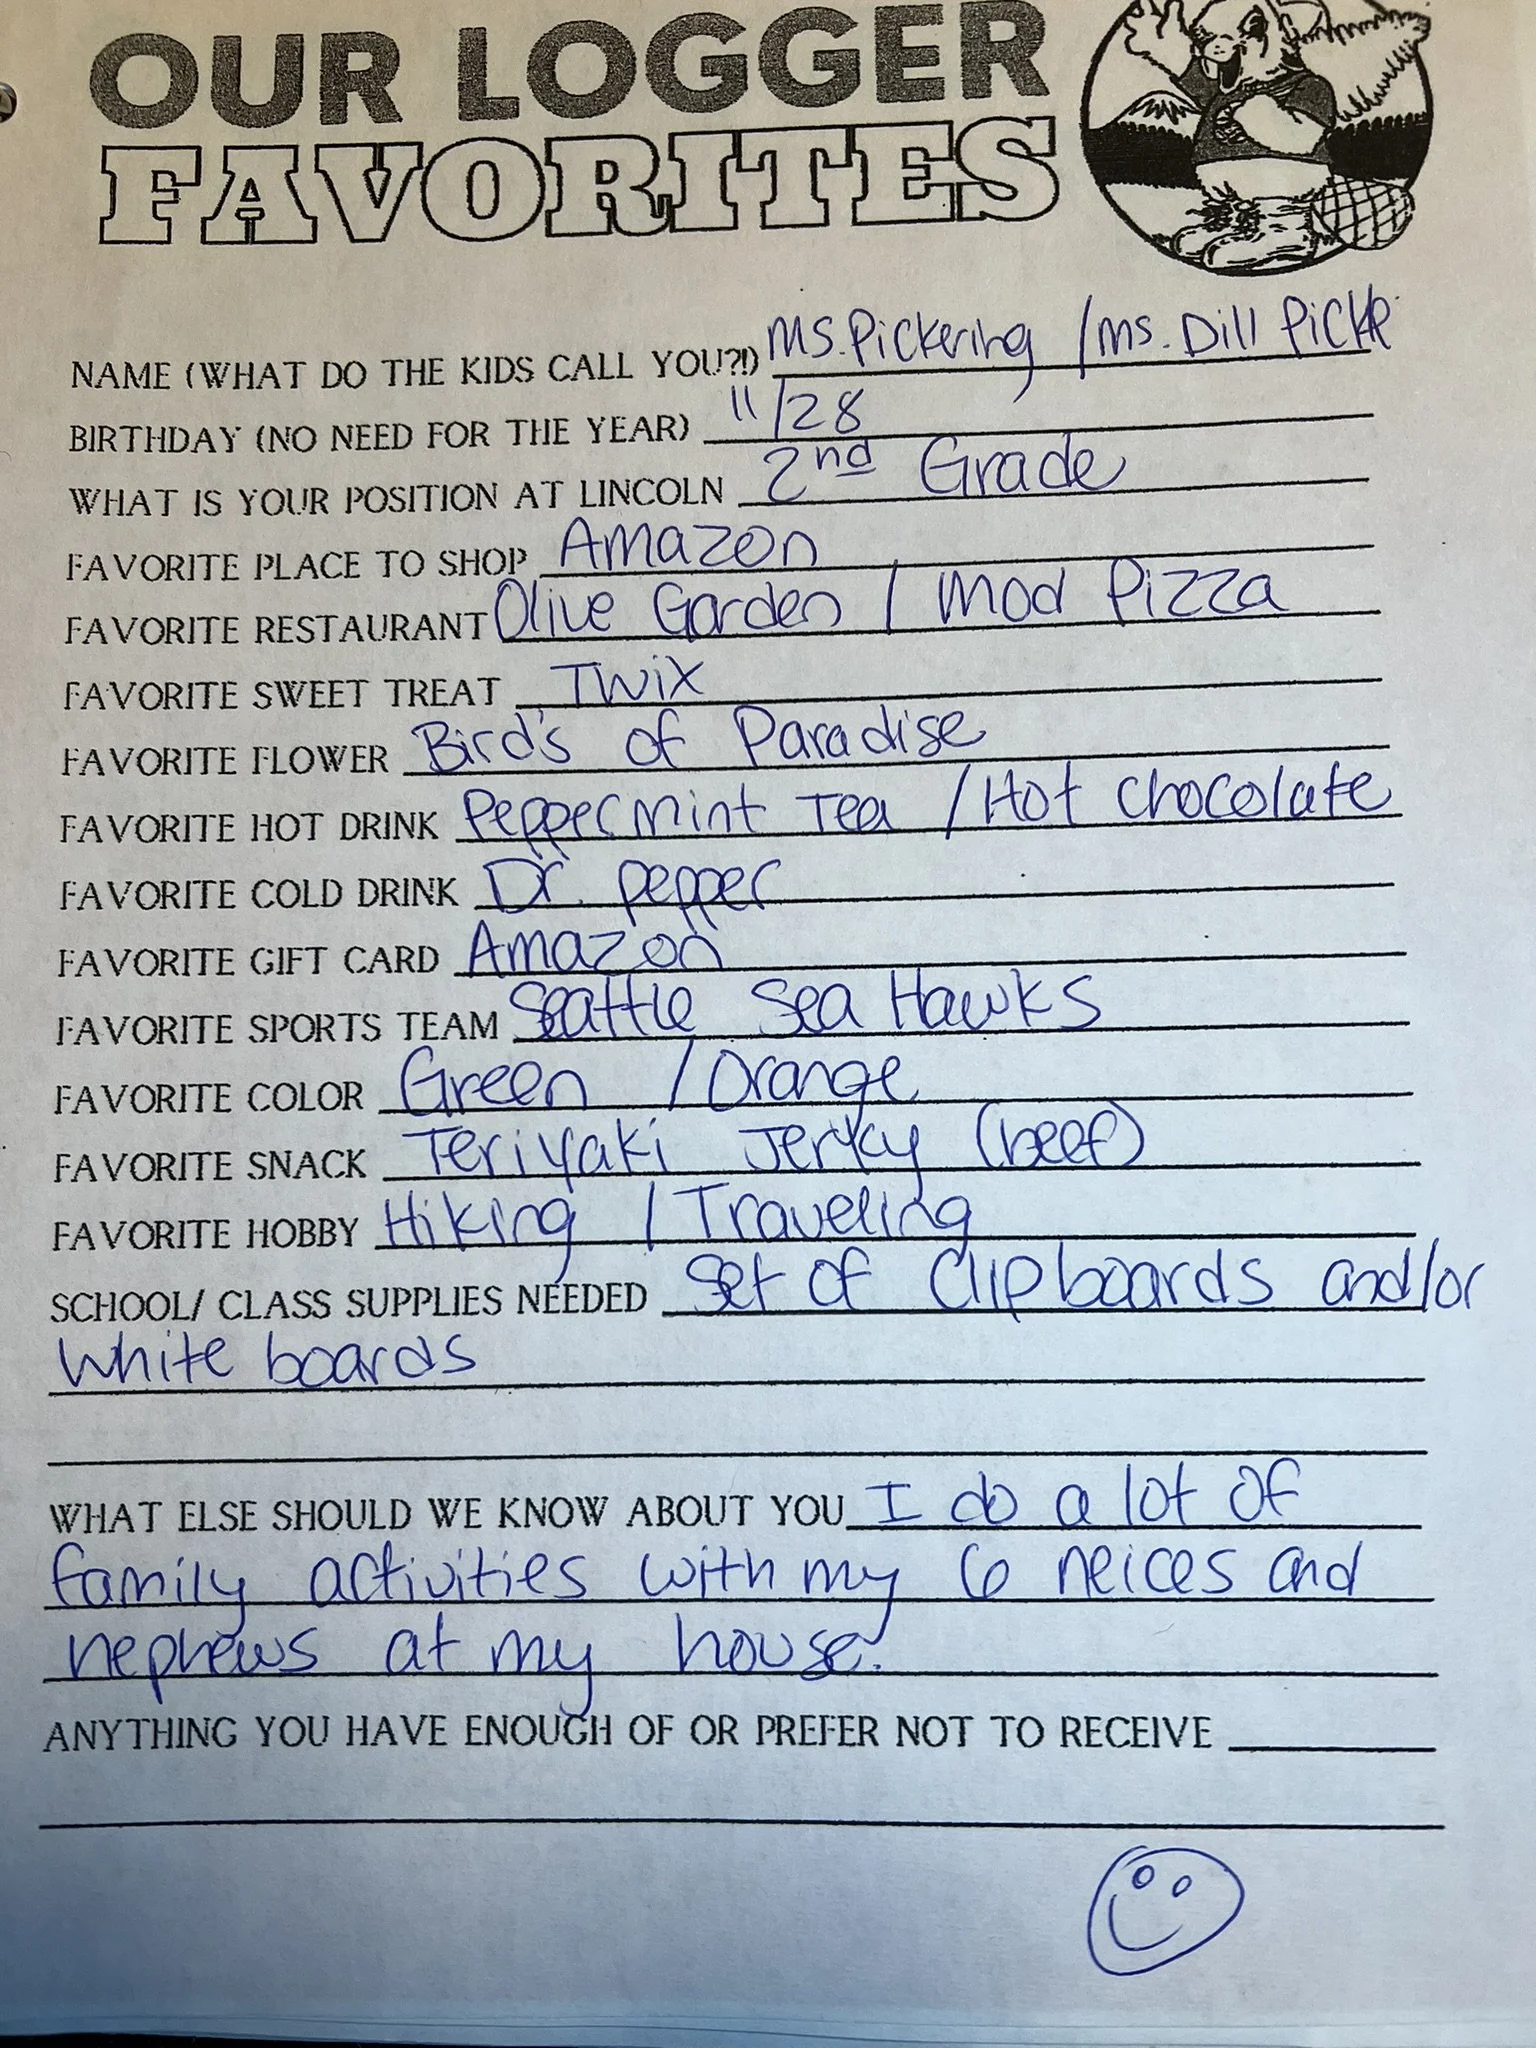 OUR LOGGER
FAVORITES
NAME (WHAT DO THE KIDS CALL YOU?!) Ms. Pickering / Ms. Dill Pickle
BIRTHDAY (NO NEED FOR THE YEAR) 11/28
WHAT IS YOUR POSITION AT LINCOLN 2nd Grade
FAVORITE PLACE TO SHOP Amazon
FAVORITE RESTAURANT Olive Garden / Mod Pizza
FAVORITE SWEET TREAT Twix
FAVORITE FLOWER Bird's of Paradise
FAVORITE HOT DRINK Peppermint Tea / Hot Chocolate
FAVORITE COLD DRINK Dr. pepper
FAVORITE GIFT CARD Amazon
FAVORITE SPORTS TEAM Seattle Sea Hawks
FAVORITE COLOR Green / Orange
FAVORITE SNACK Teriyaki Jerky (beef)
FAVORITE HOBBY Hiking / Traveling
SCHOOL/ CLASS SUPPLIES NEEDED Set of Clipboards and/or
white boards
WHAT ELSE SHOULD WE KNOW ABOUT YOU I do a lot of
family activities with my 6 neices and
nephews at my house.
ANYTHING YOU HAVE ENOUGH OF OR PREFER NOT TO RECEIVE